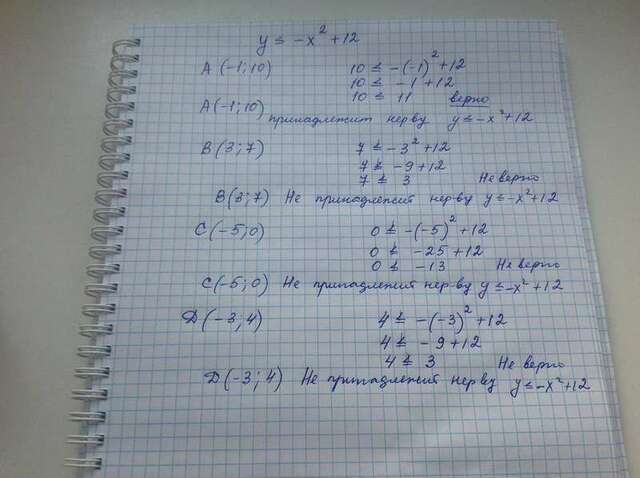 y ≤ -x² + 12
A (-1; 10) 10 ≤ -(-1)² + 12
10 ≤ -1 + 12
10 ≤ 11 верно
A (-1; 10)
принадлежит нер-ву y ≤ -x² + 12
B (3; 7) 7 ≤ -3² + 12
7 ≤ -9 + 12
7 ≤ 3 Не верно
B (3; 7) Не принадлежит нер-ву y ≤ -x² + 12
C (-5; 0) 0 ≤ -(-5)² + 12
0 ≤ -25 + 12
0 ≤ -13 Не верно
C (-5; 0) Не принадлежит нер-ву y ≤ -x² + 12
Д (-3; 4) 4 ≤ -(-3)² + 12
4 ≤ -9 + 12
4 ≤ 3 Не верно
Д (-3; 4) Не принадлежит нер-ву y ≤ -x² + 12